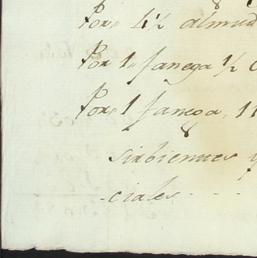 Por 4½ almud
Por 1 fanega ½ c
Por 1 fanega, 11
8
sirbientes y
ciales - - -